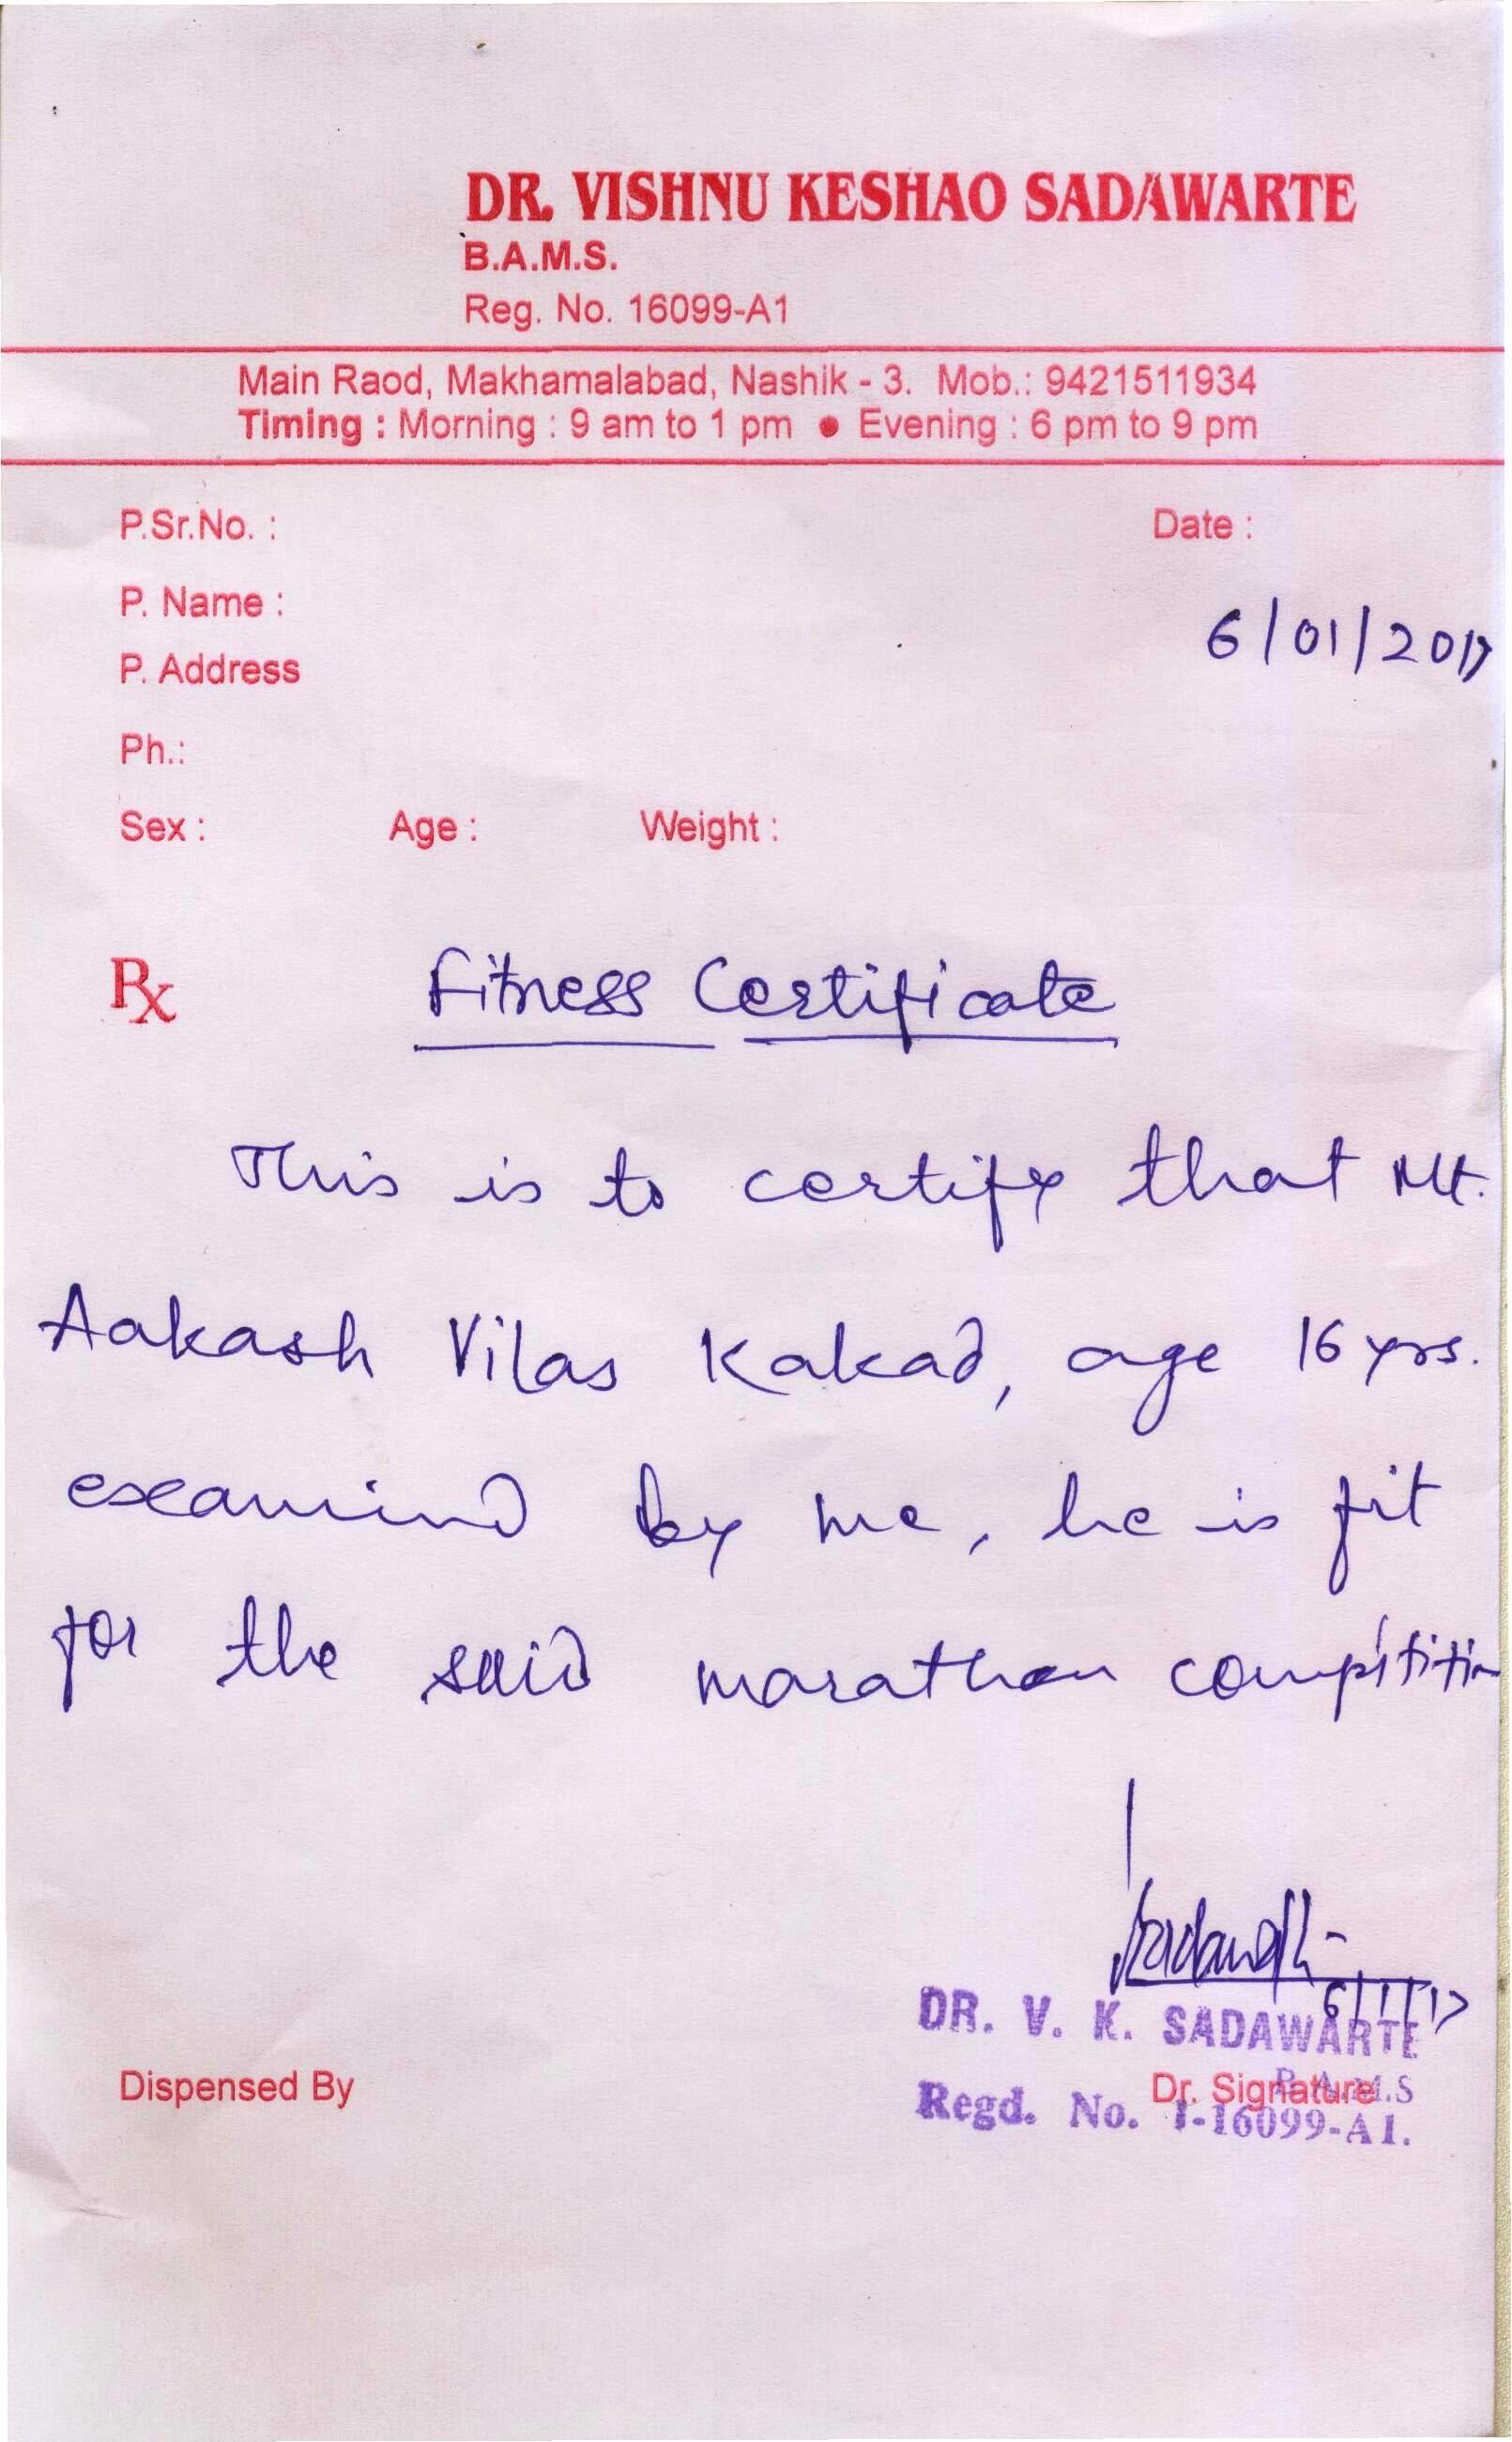 DR. VISHNU KESHAO SADAWARTE
B.A.M.S.
Reg. No. 16099-A1
Main Raod, Makhamalabad, Nashik - 3. Mob.: 9421511934
Timing : Morning : 9 am to 1 pm ● Evening : 6 pm to 9 pm
P.Sr.No. : Date :
P. Name :
6/01/2017
P. Address
Ph.:
Sex : Age : Weight :
Rx Fitness Certificate
This is to certify that Mr.
Aakash Vilas Kakad, age 16 yrs.
examind by me, he is fit
for the said marathon compititin
6/1/17
DR. V. K. SADAWARTE
B.A.M.S
Dispensed By Dr. Signature
Regd. No. I-16099-A1.